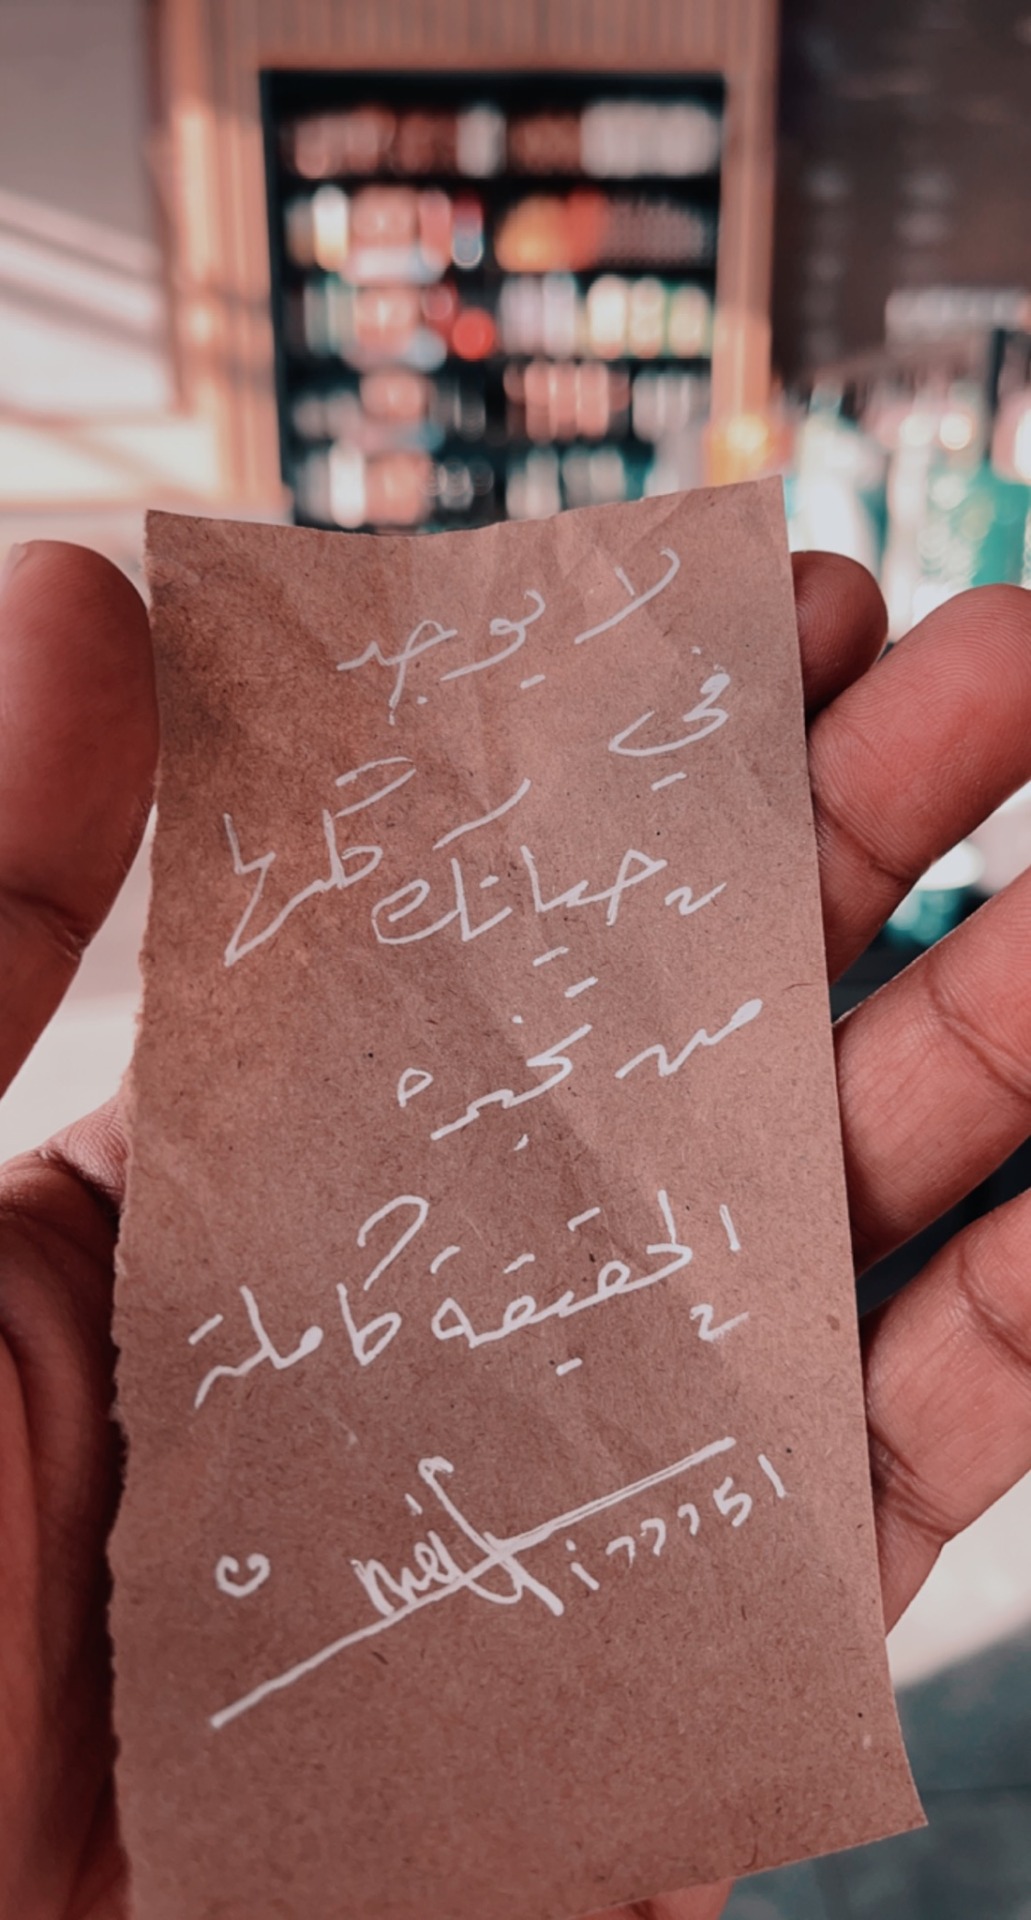 لا يوجد
في
حياتك كلها
من تخبره
الحقيقة كاملة